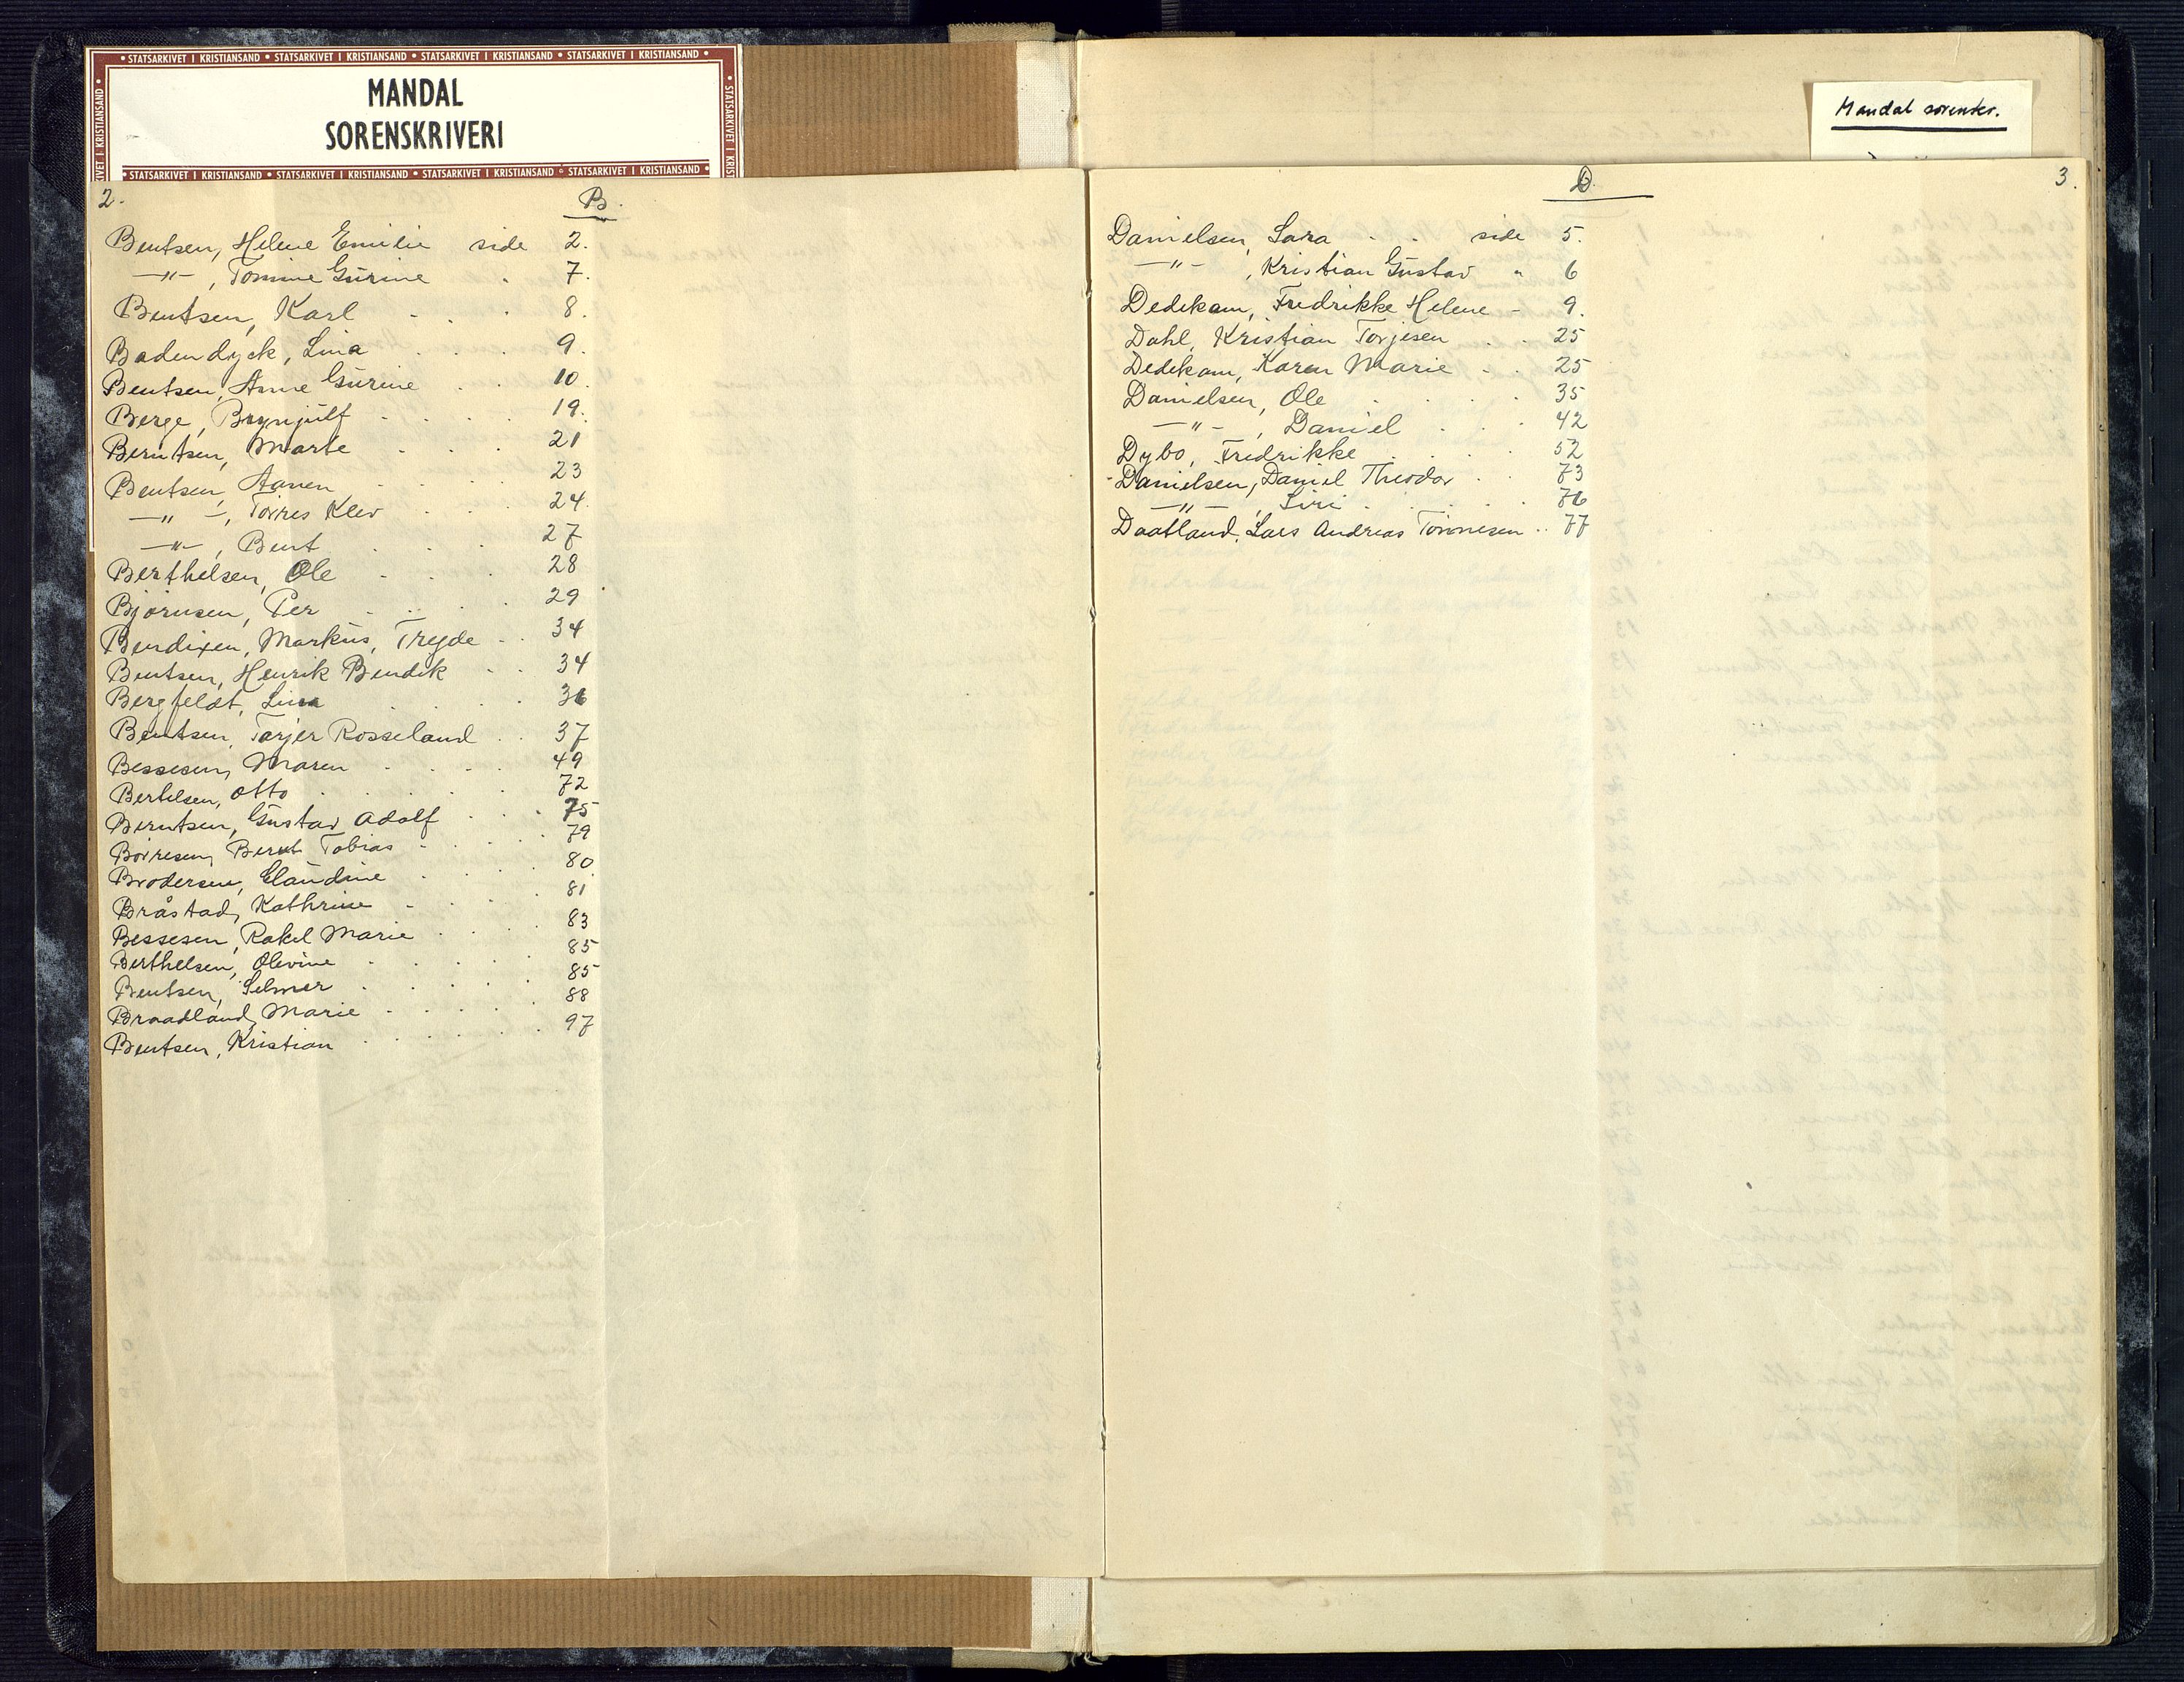 • STATSARKIVET I KRISTIANSAND • STATSARKIVET I KRISTIANSAND • STATSARKIVET I KRISTIANSAND • STATSARKIVET I KRISTIANSAND •
MANDAL
SORENSKRIVERI
• STATSARKIVET I KRISTIANSAND • STATSARKIVET I KRISTIANSAND • STATSARKIVET I KRISTIANSAND • STATSARKIVET I KRISTIANSAND
2. B.
Bentsen, Helene Emilie side 2.
—"—, Tomine Gurine . 7.
Bentsen, Karl . . . 8.
Badendyck, Lina . . . 9.
Bentsen, Anne Gurine . . 10.
Berge, Brynjulf . . . . 19.
Berntsen, Marte . . . 21
Bentsen, Aanen . . . 23
—"—, Torres Klev . . . 24.
—"—, Bent . . . 27
Berthelsen, Ole . . . 28
Bjørnsen, Per . . . . 29
Bendixen, Markus, Tregde . . 34
Bentsen, Henrik Bendik . . 34
Bergfeldt, Lina . . . 36
Bentsen, Tarjer Rosseland . . 37
Bessesen, Maren . . . . 49
Bertelsen, Otto . . . . . 72
Berntsen, Gustav Adolf . . . 75
Børresen, Bernt Tobias . . . . 79
Brodersen, Claudine . . . . 80
Bråstad, Kathrine . . . . 81
Bessesen, Rakel Marie . . . . 83
Berthelsen, Olevine . . . . . 85
Bentsen, Selmer . . . . . 85
Braadland, Marie . . . . 88
Bentsen, Kristian . . . . . 97
Mandal sorenskr.
D. 3.
Danielsen, Sara . . side 5.
—"—, Kristian Gustav " 6
Dedekam, Fredrikke Helene - 9.
Dahl, Kristian Torjesen . . 25
Dedekam, Karen Marie . . 25
Danielsen, Ole . . . . 35
—"—, Daniel . . . 42
Dybo, Fredrikke . . . . 52
Danielsen, Daniel Theodor . . 73
—"—, Siri . . . . 76
Daatland, Lars Andreas Tønnesen . . 77